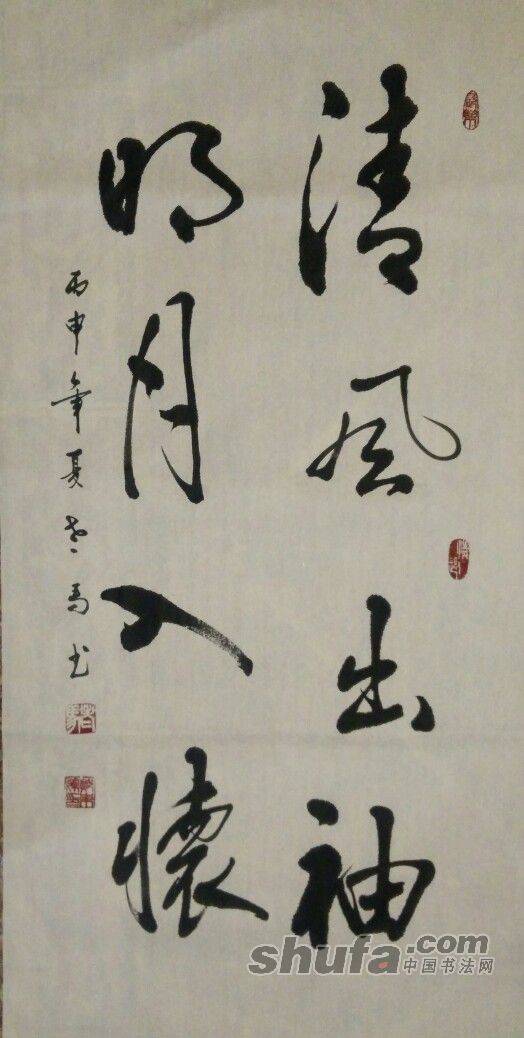 清风出袖
明月入怀
丙申年夏老马书
shufa.com
中国书法网